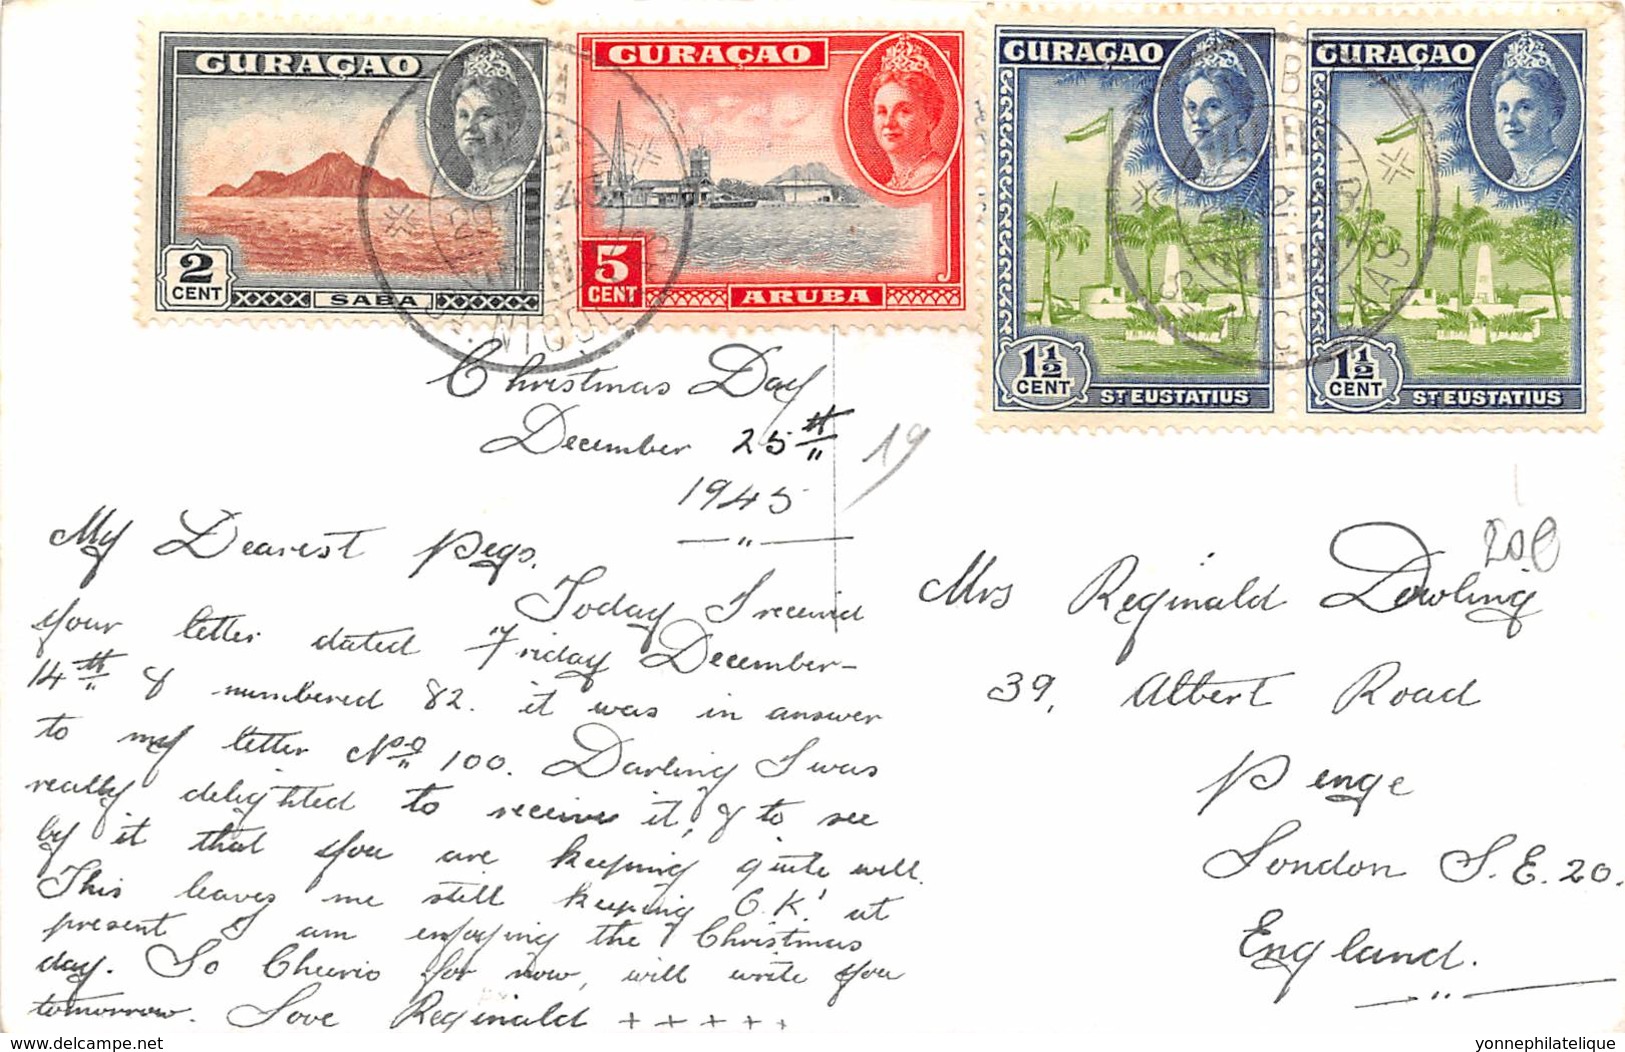 CURAÇAO
2 CENT
SABA
CURAÇAO
5 CENT
ARUBA
CURAÇAO
1½ CENT
ST EUSTATIUS
CURAÇAO
1½ CENT
ST EUSTATIUS
NICOLAAS
Christmas Day
December 25th
1945
19
My Dearest Pegs.
Today I received
your letter dated Friday December
14th & numbered 82. it was in answer
to my letter No 100. Darling I was
really delighted to receive it, & to see
by it that you are keeping quite well.
This leaves me still keeping O.K! at
present I am enjoying the Christmas
day. So Cheerio for now, will write you
tomorrow. Love Reginald + + + + +
Mrs Reginald Dowling
39, Albert Road
Penge
London S.E.20.
England.
delcampe.net
yonnephilatelique